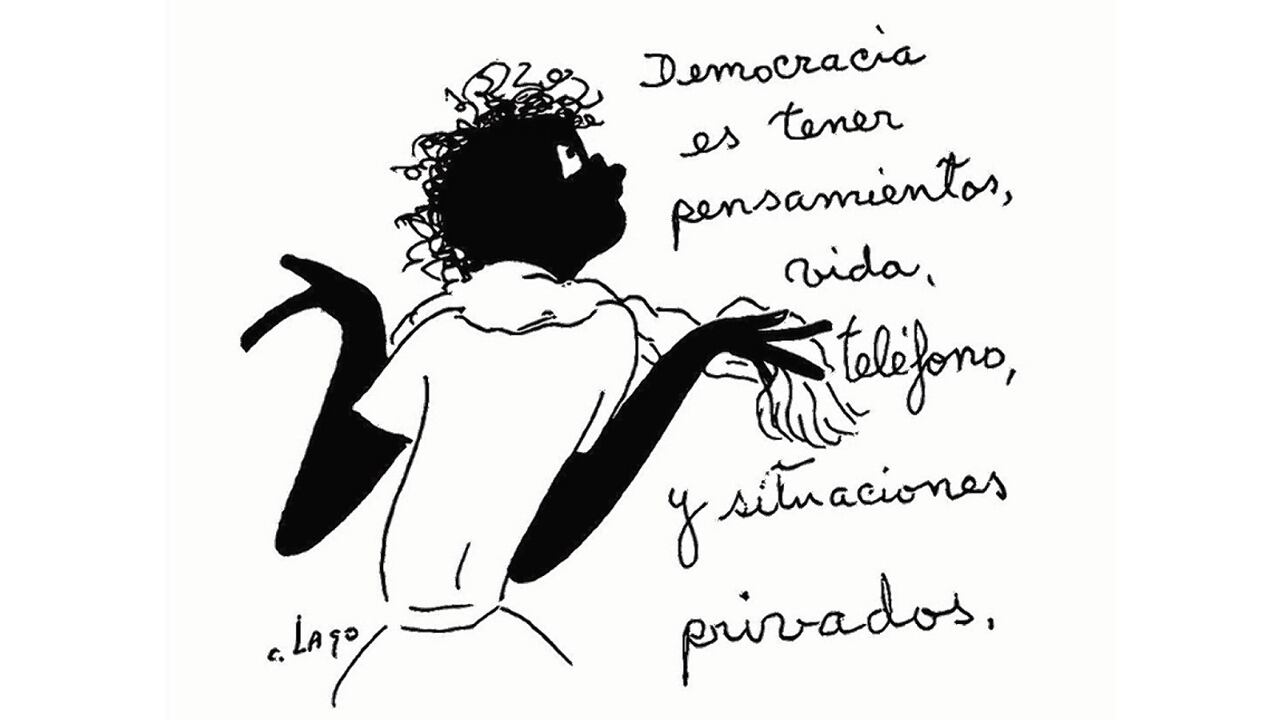 Democracia
es tener
pensamientos,
vida,
teléfono,
y situaciones
privados.
c. Lago